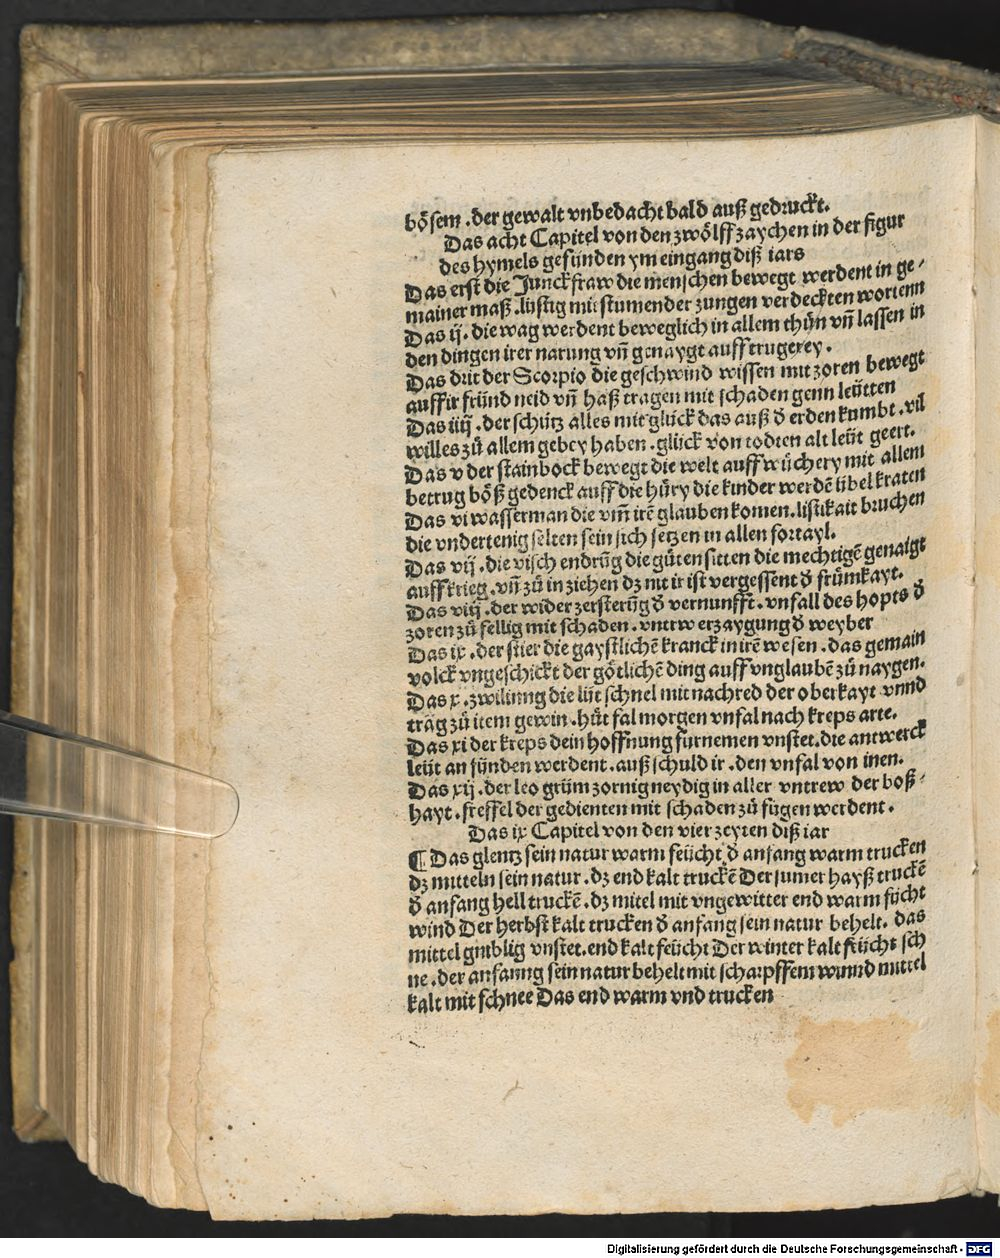 bősem .der gewalt vnbedacht bald auß gedruckt.
Das acht Capitel von den zwőlff zaychen in der figur
des hymels gefũnden ym eingang diß iars
Das erst die Junckfraw die menschen bewegt werdent in ge⸗
mainer maß .lüstig mit stumender zungen verdeckten wortenn
Das ij. die wag werdent beweglich in allem thůn vñ lassen in
den dingen irer narung vñ genaygt auff trugerey.
Das drit der Scorpio die geschwind wissen mit zoren bewegt
auff ir fründ neid vñ haß tragen mit schaden genn leütten
Das iiij .der schütz alles mit glück das auß ð erden kumbt .vil
willes zů allem gebey haben .glück von todten alt leüt geert.
Das v der stainbock bewegt die welt auff wůchery mit allem
betrug bőß gedenck auff die hůry die kinder werdẽ übel kraten
Das vi wasserman die vm̃ irẽ glauben komen.listikait bruchen
die vndertenig selten sein sich setzen in allen fortayl.
Das vij .die visch endrũg die gůten sitten die mechtigẽ genaigt
auff krieg .vñ zů in ziehen dz nit ir ist vergessent ð frümkayt.
Das viij .der wider zersterũg ð vernunfft .vnfall des hopts ð
zoren zů fellig mit schaden .vntrw erzaygung ð weyber
Das ix .der stier die gaystlichẽ kranck in irẽ wesen .das gemain
volck vngeschickt der gőtlichẽ ding auff vnglaubẽ zů naygen.
Das x .zwilinng die lüt schnel mit nachred der oberkayt vnnd
träg zů item gewin .hüt fal morgen vnfal nach kreps arte.
Das xi der kreps dein hoffnung furnemen vnstet.die antwerck
leüt an sünden werdent .auß schuld ir .den vnfal von inen.
Das xij .der leo grüm zornig neydig in aller vntrew der boß⸗
hayt .freffel der gedienten mit schaden zů fügen werdent.
Das ix Capitel von den vier zeyten diß iar
¶ Das glentz sein natur warm feücht ð anfang warm trucken
dz mitteln sein natur .dz end kalt truckẽ Der sumer hayß truckẽ
ð anfang hell truckẽ .dz mitel mit vngewitter end warm fücht
wind Der herbst kalt trucken ð anfang sein natur behelt. das
mittel vnstet.end kalt feücht Der winter kalt fücht sch
ne .der anfanng sein natur behelt mit scharpffem winnd mittel
kalt mit schnee Das end warm vnd trucken
Digitalisierung gefördert durch die Deutsche Forschungsgemeinschaft - DFG